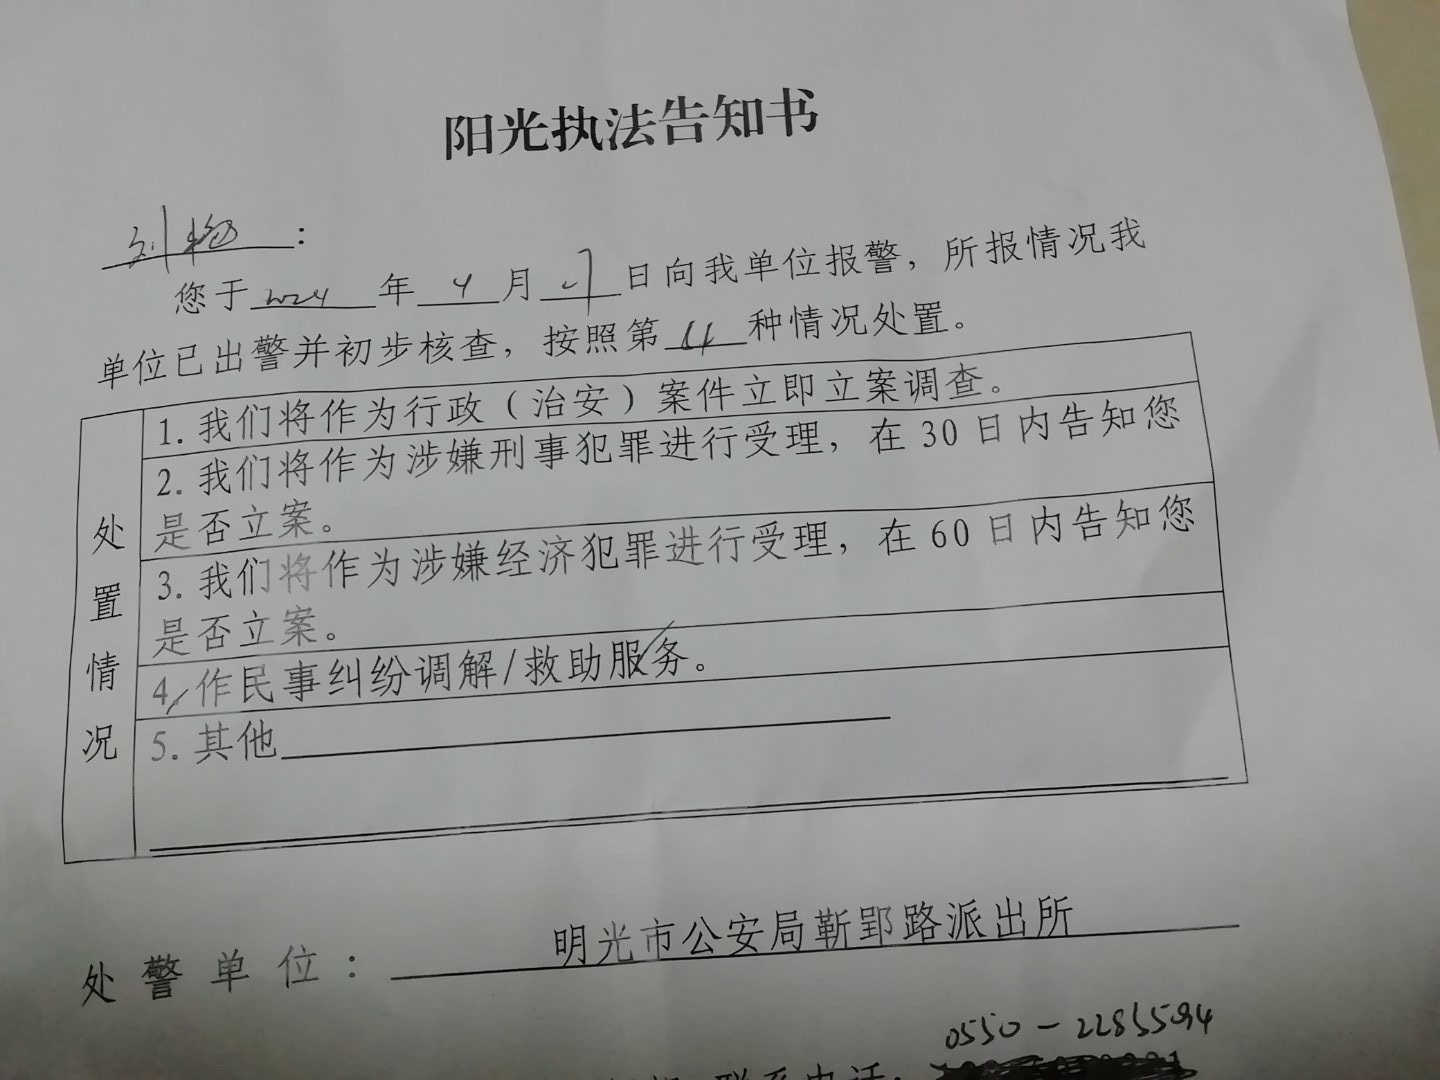 阳光执法告知书
刘艳:
您于2024年4月27日向我单位报警，所报情况我
单位已出警并初步核查，按照第4种情况处置。
处置情况
1. 我们将作为行政（治安）案件立即立案调查。
2. 我们将作为涉嫌刑事犯罪进行受理，在30日内告知您
是否立案。
3. 我们将作为涉嫌经济犯罪进行受理，在60日内告知您
是否立案。
4. 作民事纠纷调解/救助服务。
5. 其他
处警单位：明光市公安局靳郢路派出所
0550-2285594
联系电话：